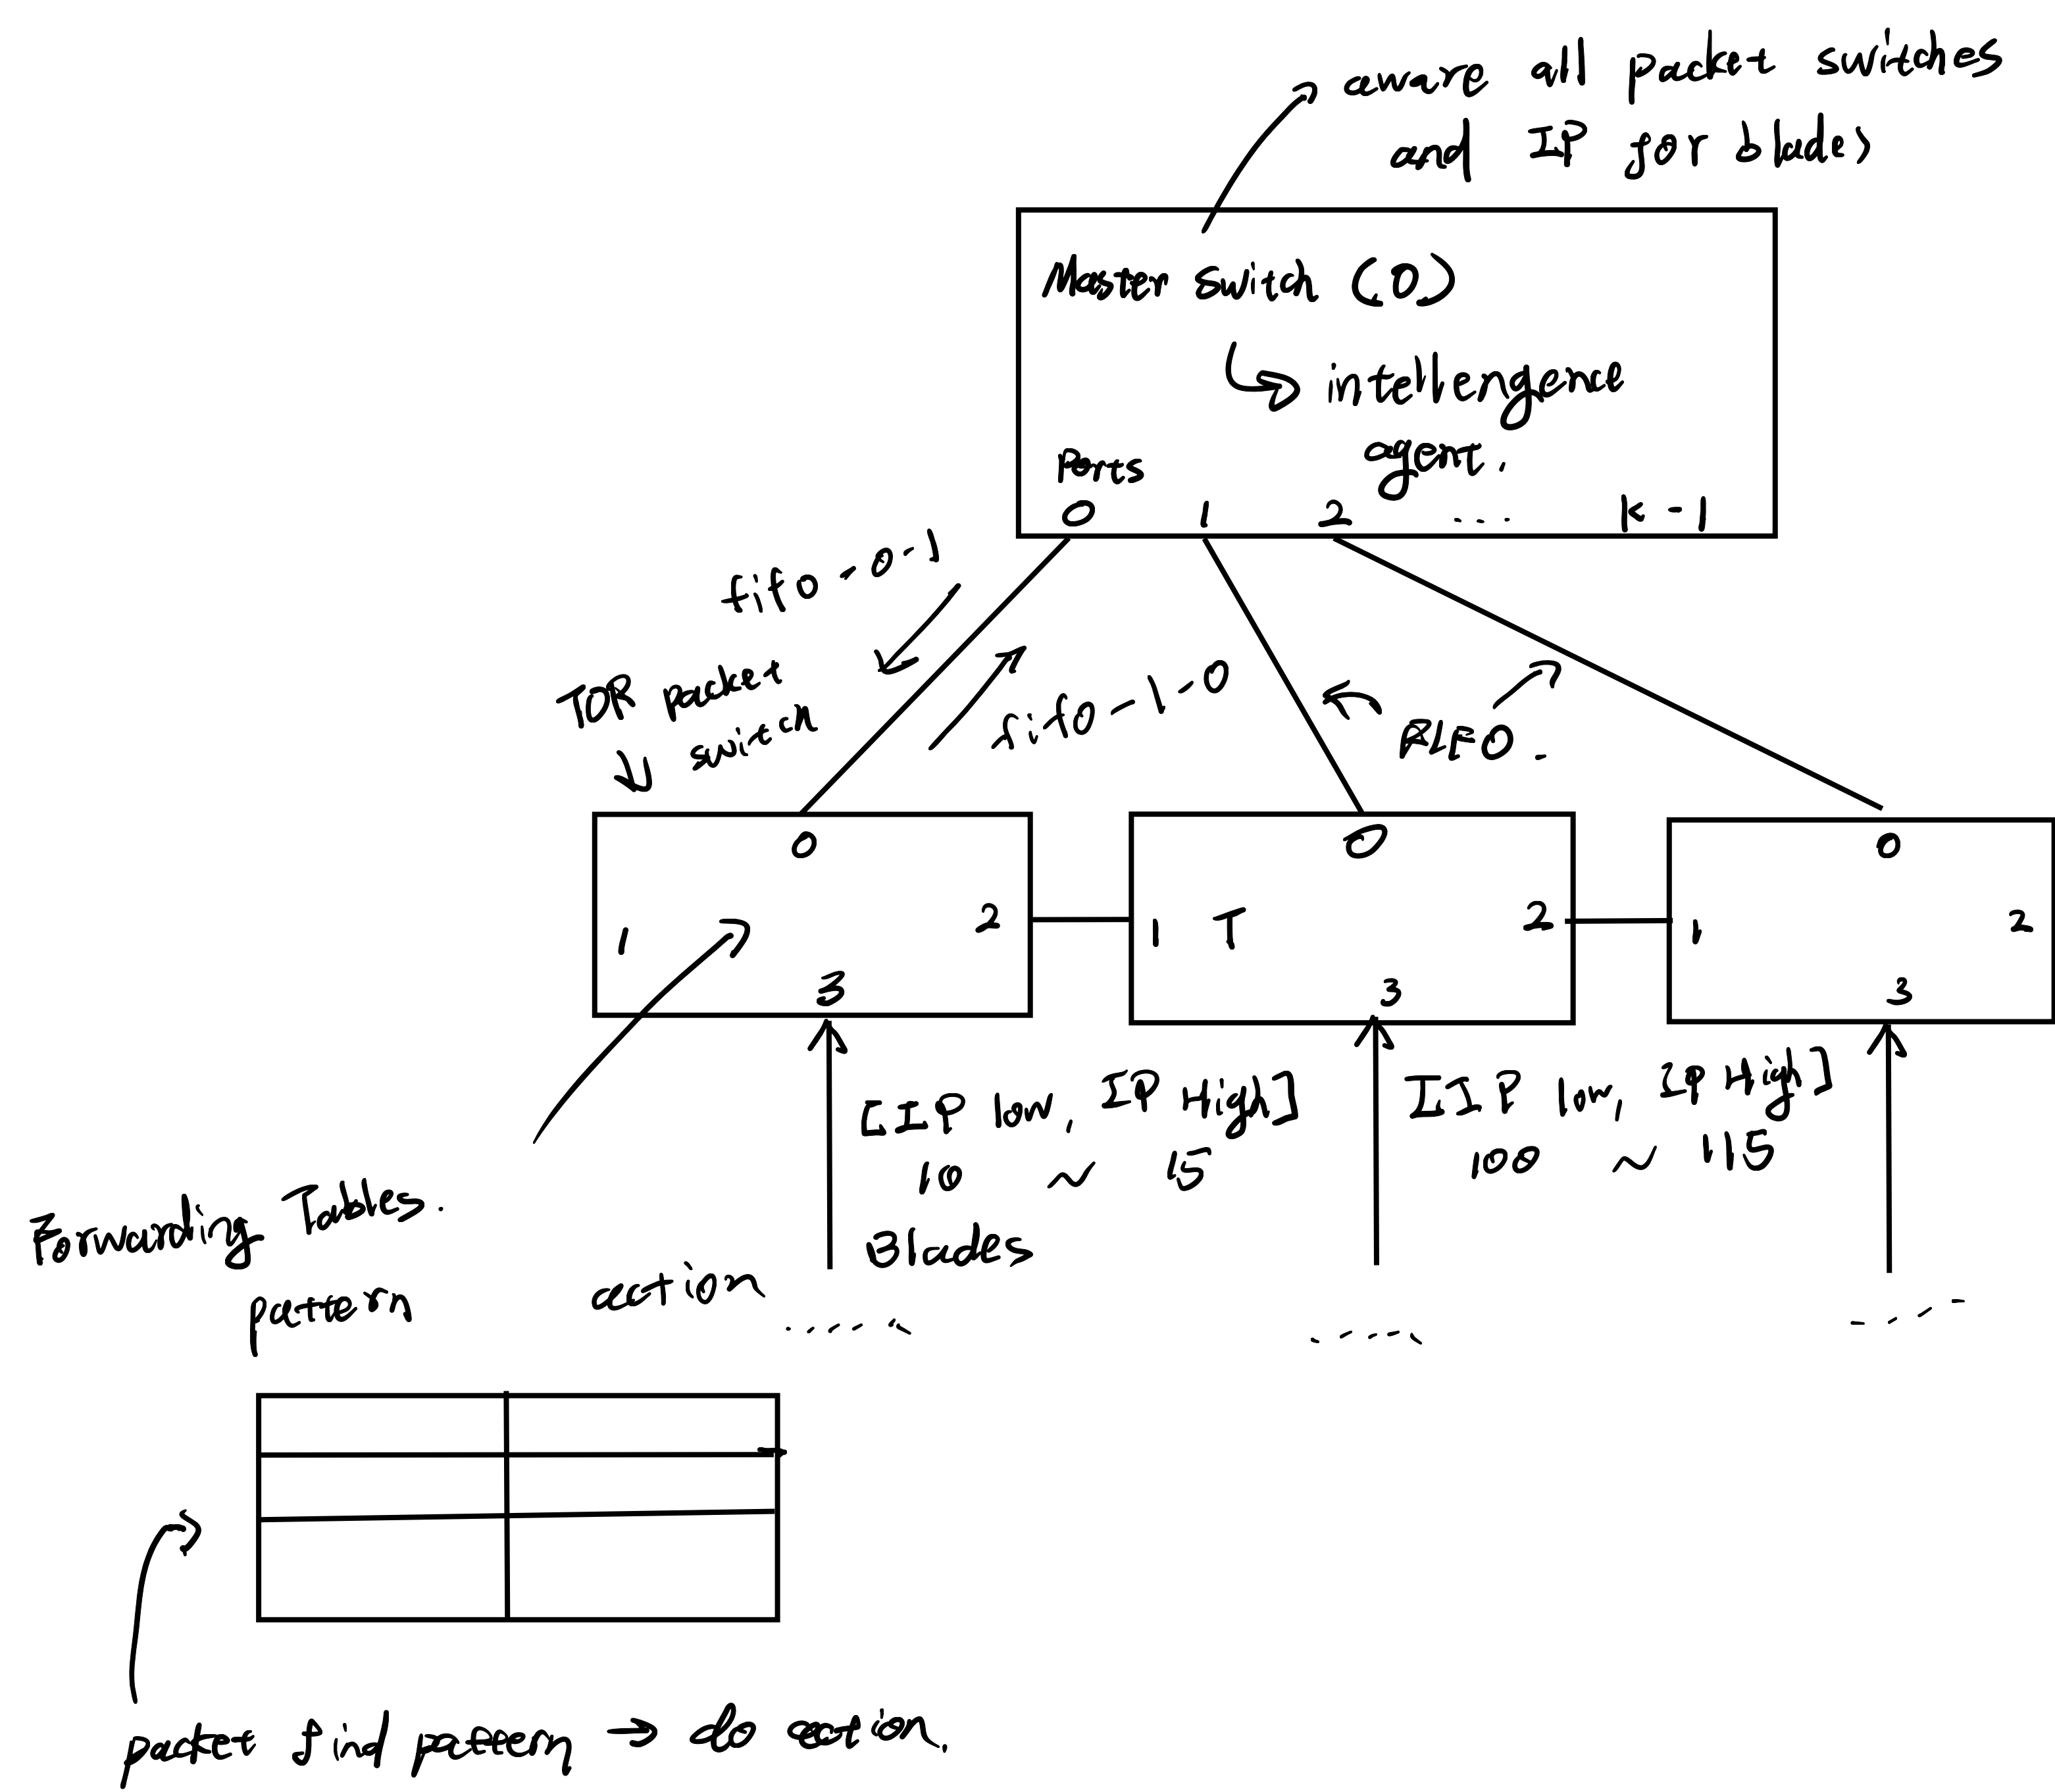 aware all packet switches
and IP for blades
Master Switch (0)
intellengence
agent.
Ports
0 1 2 ... k-1
fifo-0-1
TOR packet
switch
fifo-1-0
FIFO.
0
1 2
3
0
1 T 2
3
0
1 2
3
[IP low, IP High]
10 ~ 15
Blades
.....
[IP low, IP High]
100 ~ 115
.....
....
Forwarding Tables.
pattern action
packet find pattern → do action.